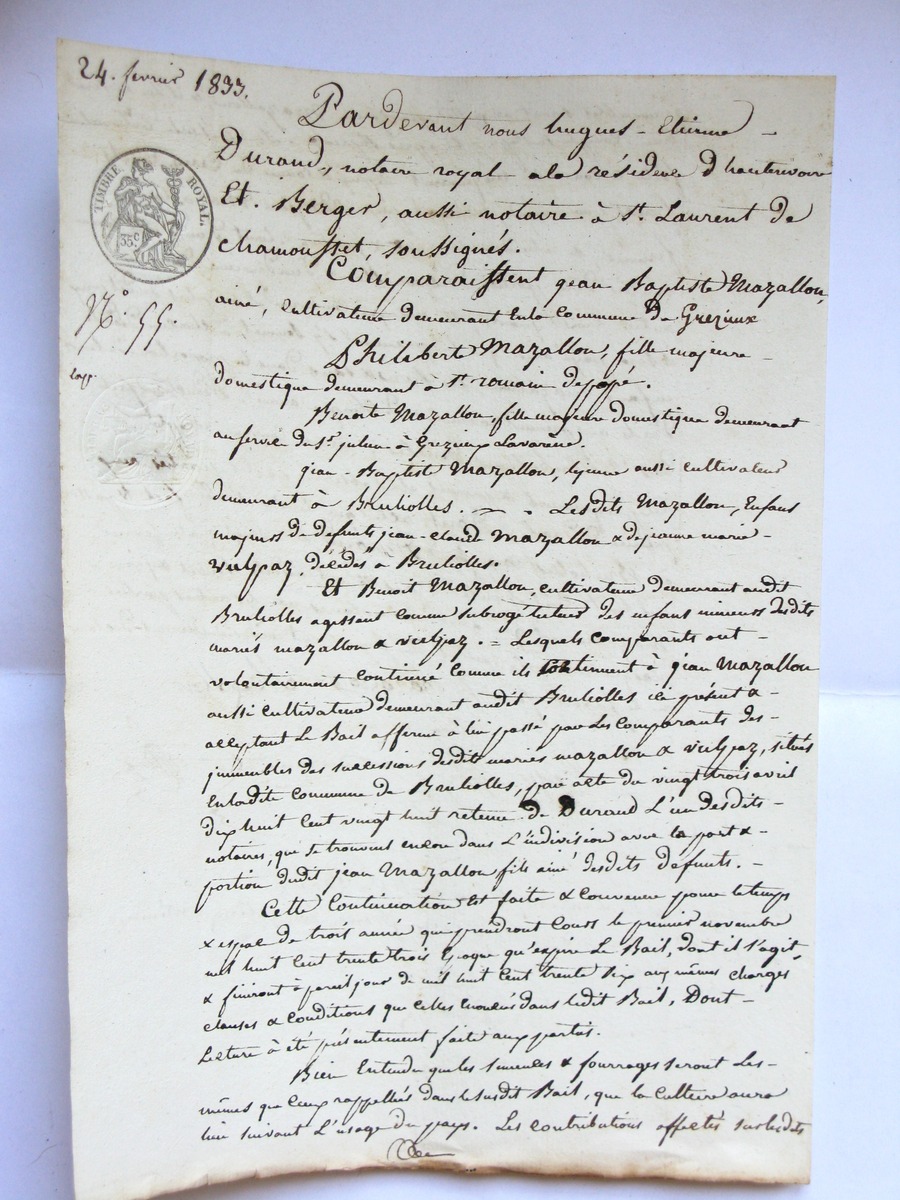 24. fevrier 1833.
Pardevant nous hugues - Etienne -
Durand, notaire royal à la résidence d'hauterivoire
Et. Berger, aussi notaire à St. Laurent de
chamousset, soussignés.
TIMBRE ROYAL.
35 c
N° 55.
Comparaissent jean Baptiste Mazallon,
ainé, cultivateur demeurant en la commune de Grezieux
Philiberte Mazallon, fille majeure -
domestique demeurant à St. romain de popé.
Benoite Mazallon, fille majeure domestique demeurant
au service du Sr. julien à Grezieux Lavarenne.
jean - Baptiste Mazallon, lejeune aussi cultivateur
demeurant à Brulliolles. - Lesdits Mazallon, Enfans
majeurs de defunts jean - claude Mazallon & de jeanne marie -
vulpaz, décédés à Brulliolles.
Et Benoit Mazallon, cultivateur demeurant audit
Brulliolles agissant comme subrogé tuteur des enfans mineurs desdits
mariés mazallon & vulpaz. = Lesquels comparants ont -
volontairement continué comme ils continuent à jean Mazallon
aussi cultivateur demeurant audit Brulliolles ici présent &
acceptant Le Bail afferme à lui passé par Les comparants des -
immeubles des successions desdits mariés mazallon & vulpaz, situés
en ladite commune de Brulliolles, par acte du vingt trois avril
dix huit cent vingt huit retenu de Durand L'un desdits -
notaires, que se trouvent encore dans L'indivision avec la part & -
portion dudit jean Mazallon fils ainé desdits défunts. -
Cette Continuation Est faite & convenue pour le temps
& espace de trois année qui prendront cours le premier novembre
mil huit cent trente trois Epoque qu'expire Le Bail, dont il s'agit,
& finiront à pareil jour de mil huit cent trente six aux mêmes charges
clauses & conditions que celles énoncées dans ledit Bail, Dont -
Lecture à été présentement faite aux parties.
Bien Entendu que les semences & fourrages seront Les -
mêmes que ceux rappellés dans le susdit Bail, que la culture aura
lieu suivant L'usage du pays. Les contributions affectés sur lesdits